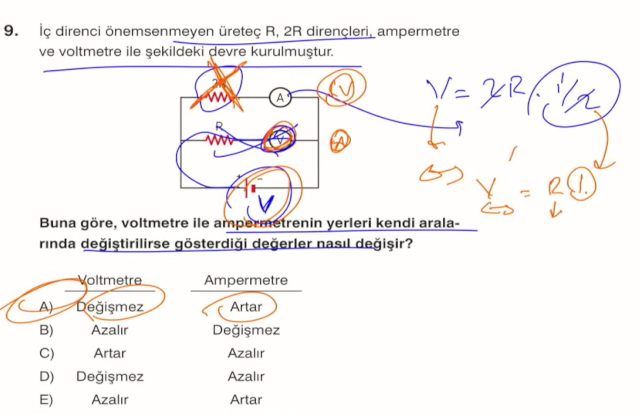 9. İç direnci önemsenmeyen üreteç R, 2R dirençleri, ampermetre
ve voltmetre ile şekildeki devre kurulmuştur.
A
V
V = 2R . 1/2
R
A
V = R 1
V
Buna göre, voltmetre ile ampermetrenin yerleri kendi arala-
rında değiştirilirse gösterdiği değerler nasıl değişir?
Voltmetre Ampermetre
A) Değişmez Artar
B) Azalır Değişmez
C) Artar Azalır
D) Değişmez Azalır
E) Azalır Artar